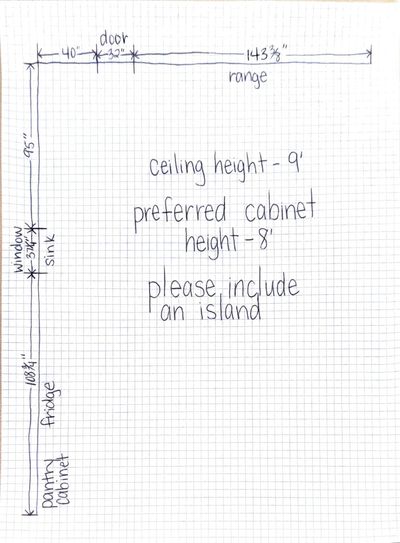 door
40"
32"
143 3/8"
range
95"
ceiling height - 9'
preferred cabinet
height - 8'
please include
an island
window
sink
108 3/4"
fridge
pantry
cabinet